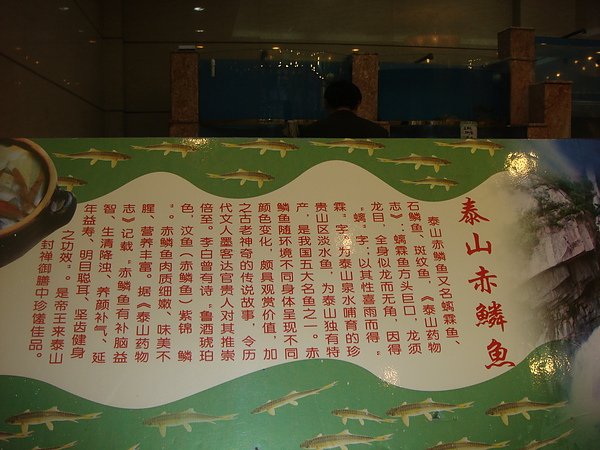 泰山赤鳞魚
泰山赤鳞鱼又名螭霖鱼、
石鳞鱼、斑纹鱼,《泰山药物
志》:螭霖鱼方头巨口,龙须
龙目,全身似龙而无角,因得
“螭”字;以其性喜雨而得“
霖”字。为泰山泉水哺育的珍
贵山区淡水鱼,为泰山独有特
产,是我国五大名鱼之一。赤
鳞鱼随环境不同身体呈现不同
颜色变化,颇具观赏价值,加
之古老神奇的传说故事,令历
代文人墨客达官贵人对其推崇
倍至。李白曾有诗“鲁酒琥珀
色,汶鱼(赤鳞鱼)紫锦鳞
”。赤鳞鱼肉质细嫩、味美不
腥、营养丰富。据《泰山药物
志》记载“赤鳞鱼有补脑益
智、生清降浊、养颜补气、延
年益寿、明目聪耳、坚齿健身
之功效”。是帝王来泰山
封禅御膳中珍馐佳品。